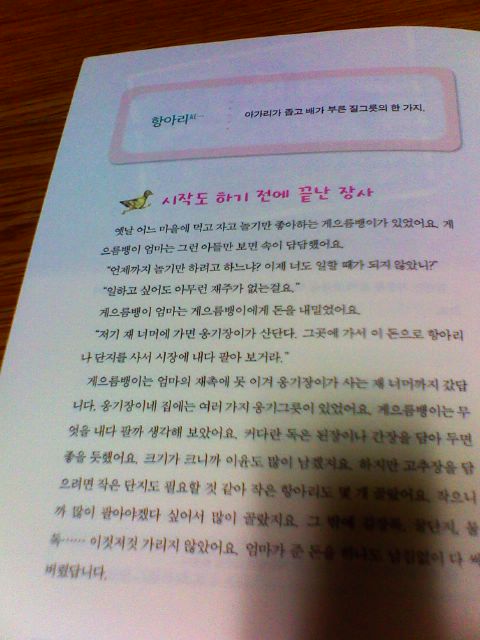 항아리
아가리가 좁고 배가 부른 질그릇의 한 가지.
시작도 하기 전에 끝난 장사
옛날 어느 마을에 먹고 자고 놀기만 좋아하는 게으름뱅이가 있었어요. 게
으름뱅이 엄마는 그런 아들만 보면 속이 답답했어요.
"언제까지 놀기만 하려고 하느냐? 이제 너도 일할 때가 되지 않았니?"
"일하고 싶어도 아무런 재주가 없는걸요."
게으름뱅이 엄마는 게으름뱅이에게 돈을 내밀었어요.
"저기 재 너머에 가면 옹기장이가 산단다. 그곳에 가서 이 돈으로 항아리
나 단지를 사서 시장에 내다 팔아 보거라."
게으름뱅이는 엄마의 재촉에 못 이겨 옹기장이가 사는 재 너머까지 갔답
니다. 옹기장이네 집에는 여러 가지 옹기그릇이 있었어요. 게으름뱅이는 무
엇을 내다 팔까 생각해 보았어요. 커다란 독은 된장이나 간장을 담아 두면
좋을 듯했어요. 크기가 크니까 이윤도 많이 남겠지요. 하지만 고추장을 담
으려면 작은 단지도 필요할 것 같아 작은 항아리도 몇 개 골랐어요. 작으니
까 많이 팔아야겠다 싶어서 많이 골랐지요. 그 밖에 김장독, 꿀단지, 물
독…… 이것저것 가리지 않았어요. 엄마가 준 돈을 하나도 남김없이 다 써
버렸답니다.